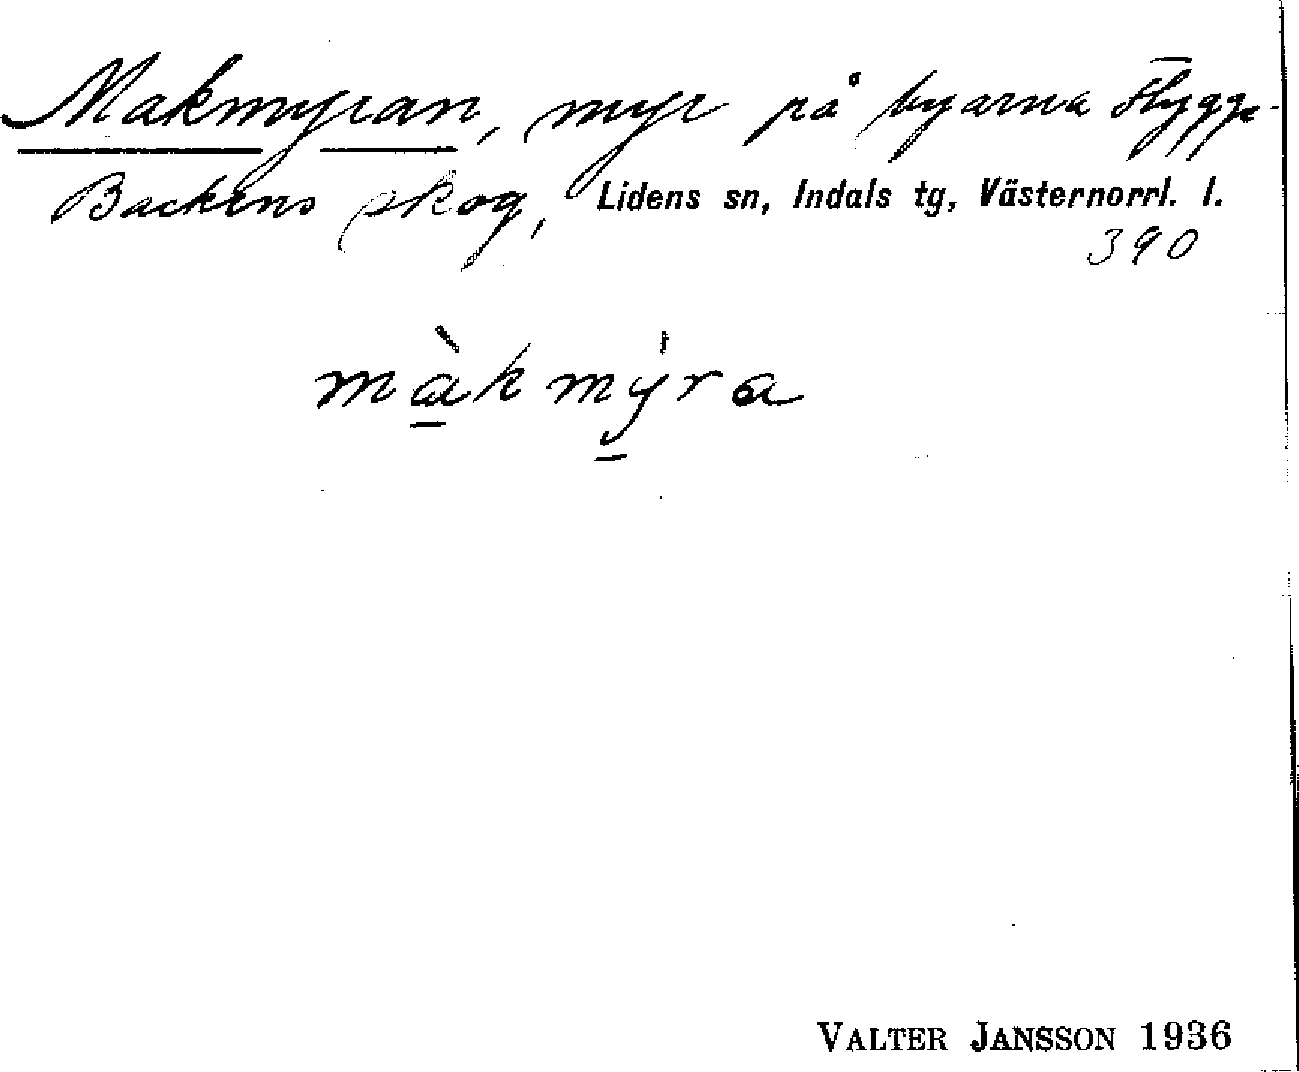 Makmyran, myr på byarna Flygge-
Backens skog, Lidens sn, Indals tg, Västernorrl. l.
390
màkmýra
VALTER JANSSON 1936